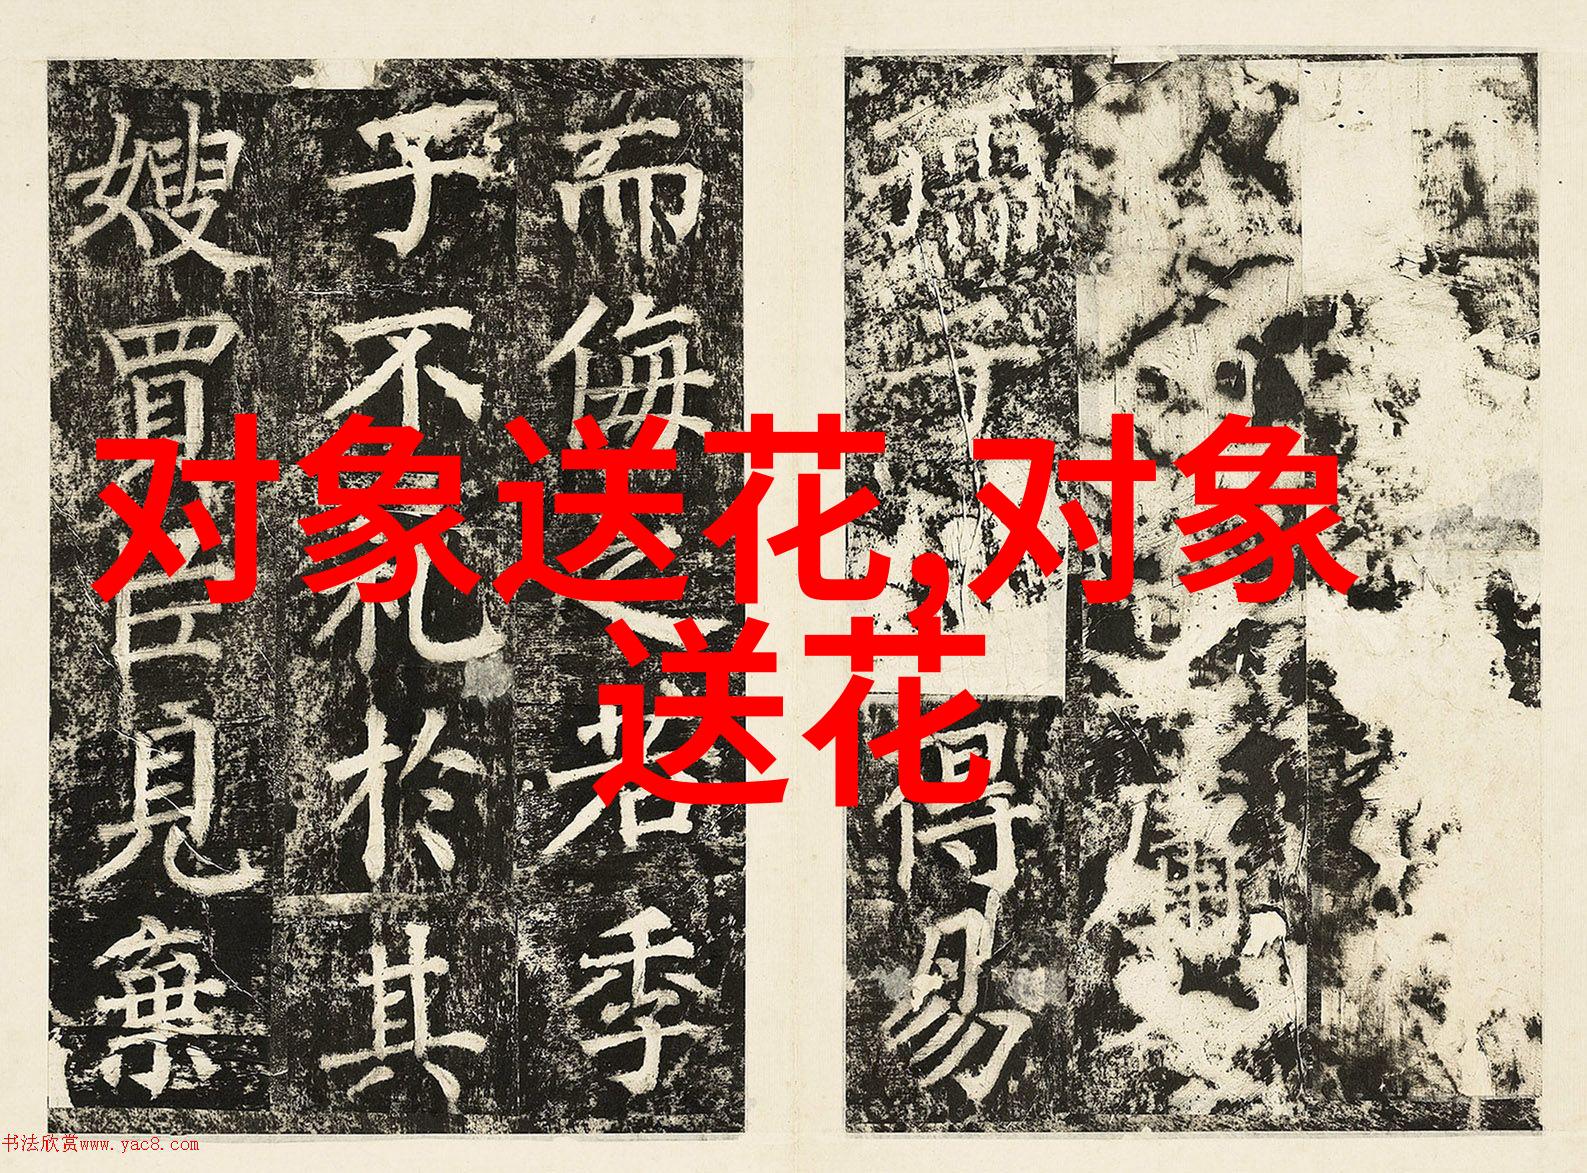 对象送花,对象
送花
得易
而侮之若季
子不礼於其
嫂買臣見棄
书法欣赏www.yac8.com